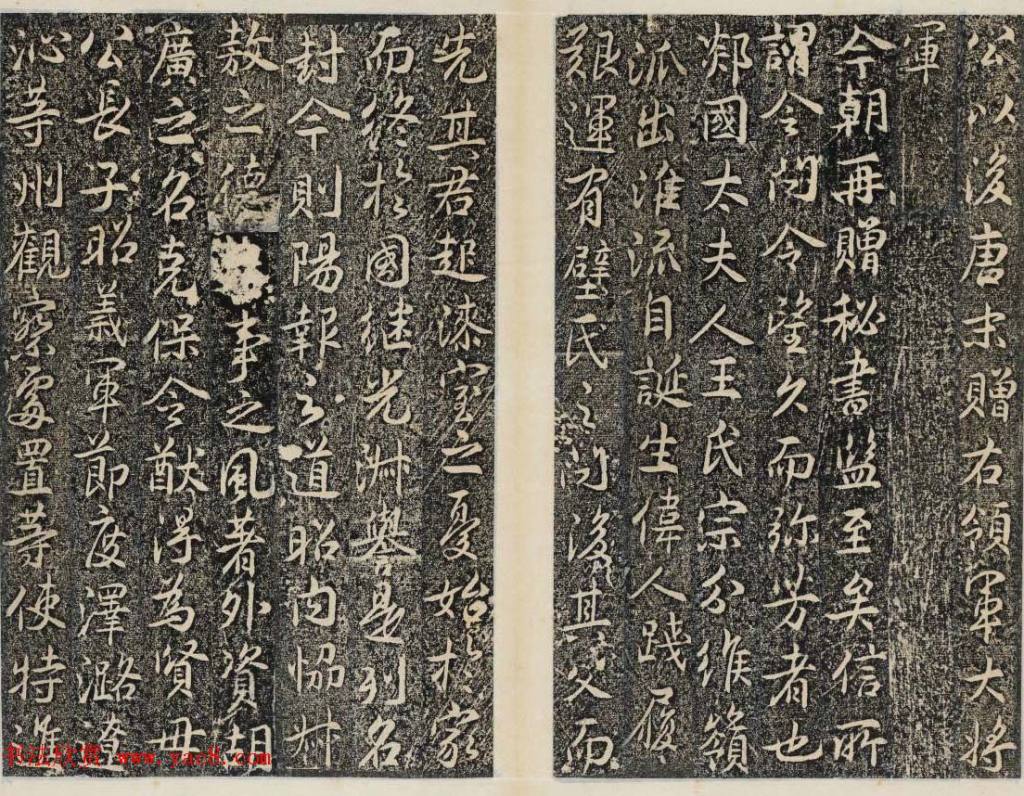 公以後唐末贈右領軍大將
軍
今朝再贈秘書監至矣信所
謂令問令望久而弥芳者也
郯國太夫人王氏宗分維嶺
派出淮流自誕生偉人踐履
艱運有壁氏之詞後其父而
先其君起漆室之憂始於家
而終於國継光淋舉是列名
封今則陽報之道昭內恊村
敖之德 事之風著外資胡
廣之名克保令猷得為賢毋
公長子昭義軍節度澤潞遼
沁等州觀察處置等使特進
书法欣赏 www.yac8.com